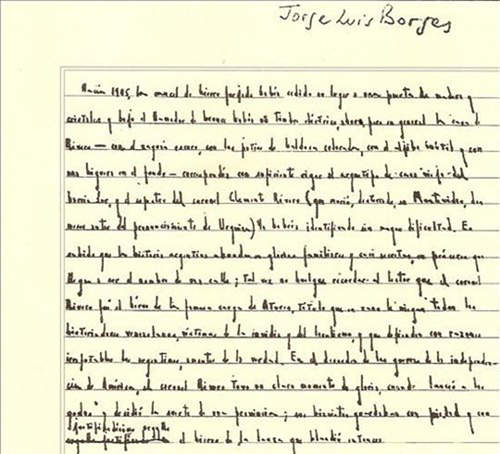 Jorge Luis Borges
Hacia 1905, la cancel de hierro forjado había cedido su lugar a una puerta de madera y
cristales y bajo el llamador de bronce había un timbre eléctrico, ahora, pero en general la casa de
Rivero — con el zaguán oscuro, con los patios de baldosa colorada, con el aljibe inútil y con
una higuera en el fondo — correspondía con suficiente rigor al arquetipo de casa vieja del
barrio Sur, y el espectro del coronel Clemente Rivero (que murió, desterrado, en Montevideo, diez
meses antes del pronunciamiento de Urquiza) la habría identificado sin mayor dificultad. Es
sabido que la historia argentina abunda en glorias familiares y casi secretas, en próceres que
llegan a ser el nombre de una calle; tal vez no huelgue recordar al lector que el coronel
Rivero fue el héroe de la primera carga de
historiadores venezolanos, víctimas de la envidia y del localismo, y que defienden con razones
irrefutables los argentinos, amantes de la verdad. En el decurso de las guerras de la independen-
cia de América, el coronel Rivero tuvo su claro momento de gloria, cuando lanzó a los
godos y decidió la suerte de una provincia; sus bisnietas guardaban con piedad y con
justificadísimo orgullo
el hierro de la lanza que blandió entonces